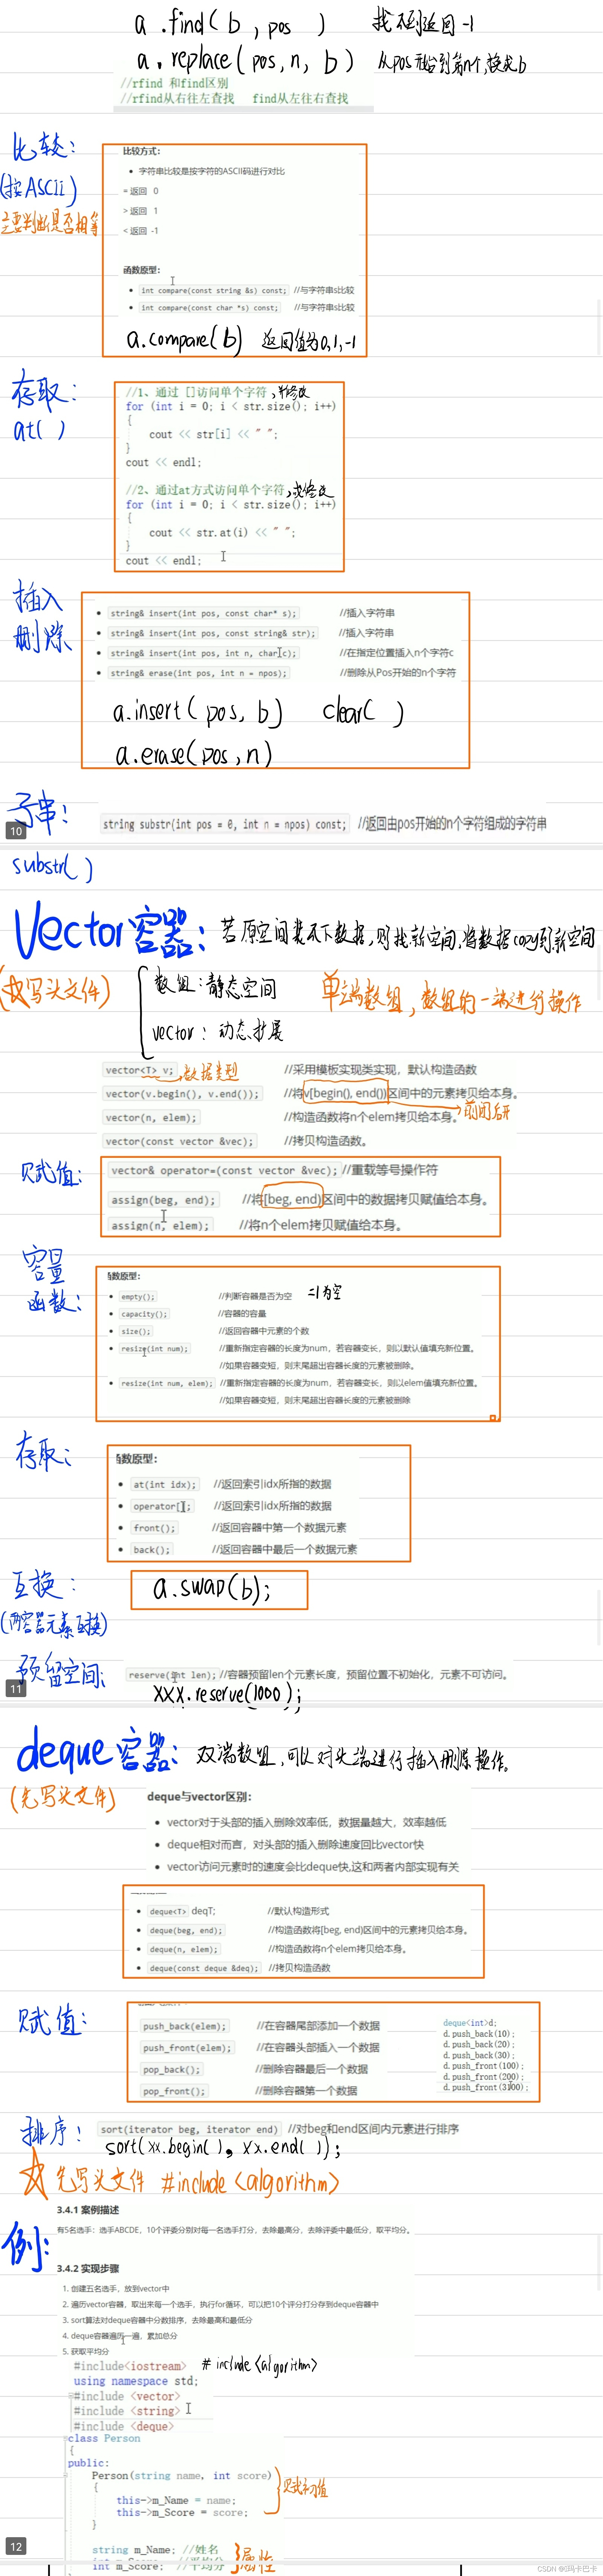 a.find(b,pos) 找不到返回-1
a.replace(pos,n,b) 从pos开始到第n个,换成b
//rfind 和find区别
//rfind从右往左查找 find从左往右查找
比较:
(按ASCii)
主要判断是否相等
比较方式:
• 字符串比较是按字符的ASCII码进行对比
= 返回 0
> 返回 1
< 返回 -1
函数原型:
• int compare(const string &s) const; //与字符串s比较
• int compare(const char *s) const; //与字符串s比较
a.compare(b) 返回值为0,1,-1
存取:
at( )
//1、通过 []访问单个字符,并修改
for (int i = 0; i < str.size(); i++)
{
cout << str[i] << " ";
}
cout << endl;
//2、通过at方式访问单个字符,或修改
for (int i = 0; i < str.size(); i++)
{
cout << str.at(i) << " ";
}
cout << endl;
插入
删除
• string& insert(int pos, const char* s); //插入字符串
• string& insert(int pos, const string& str); //插入字符串
• string& insert(int pos, int n, char c); //在指定位置插入n个字符c
• string& erase(int pos, int n = npos); //删除从Pos开始的n个字符
a.insert(pos,b) clear( )
a.erase(pos,n)
子串:
10
string substr(int pos = 0, int n = npos) const; //返回由pos开始的n个字符组成的字符串
substr( )
Vector容器: 若原空间装不下数据,则找新空间,将数据copy到新空间
(先写头文件)
数组:静态空间
vector: 动态扩展
单端数组,数组的一端进行操作
vector<T> v; 数据类型 //采用模板实现类实现,默认构造函数
vector(v.begin(), v.end()); //将v[begin(), end())区间中的元素拷贝给本身。
前闭后开
vector(n, elem); //构造函数将n个elem拷贝给本身。
vector(const vector &vec); //拷贝构造函数。
赋值:
vector& operator=(const vector &vec); //重载等号操作符
assign(beg, end); //将[beg, end)区间中的数据拷贝赋值给本身。
assign(n, elem); //将n个elem拷贝赋值给本身。
容量
函数:
函数原型:
• empty(); //判断容器是否为空 =1为空
• capacity(); //容器的容量
• size(); //返回容器中元素的个数
• resize(int num); //重新指定容器的长度为num,若容器变长,则以默认值填充新位置。
//如果容器变短,则末尾超出容器长度的元素被删除。
• resize(int num, elem); //重新指定容器的长度为num,若容器变长,则以elem值填充新位置。
//如果容器变短,则末尾超出容器长度的元素被删除
存取:
函数原型:
• at(int idx); //返回索引idx所指的数据
• operator[]; //返回索引idx所指的数据
• front(); //返回容器中第一个数据元素
• back(); //返回容器中最后一个数据元素
互换:
(两容器元素互换)
a.swap(b);
预留空间:
11
reserve(int len); //容器预留len个元素长度,预留位置不初始化,元素不可访问。
xxx.reserve(1000);
deque容器: 双端数组,可以对头端进行插入删除操作。
(先写头文件)
deque与vector区别:
• vector对于头部的插入删除效率低,数据量越大,效率越低
• deque相对而言,对头部的插入删除速度回比vector快
• vector访问元素时的速度会比deque快,这和两者内部实现有关
• deque<T> deqT; //默认构造形式
• deque(beg, end); //构造函数将[beg, end)区间中的元素拷贝给本身。
• deque(n, elem); //构造函数将n个elem拷贝给本身。
• deque(const deque &deq); //拷贝构造函数
赋值:
push_back(elem); //在容器尾部添加一个数据
push_front(elem); //在容器头部插入一个数据
pop_back(); //删除容器最后一个数据
pop_front(); //删除容器第一个数据
deque<int>d;
d.push_back(10);
d.push_back(20);
d.push_back(30);
d.push_front(100);
d.push_front(200);
d.push_front(300);
排序:
sort(iterator beg, iterator end) //对beg和end区间内元素进行排序
sort(xx.begin(), xx.end());
先写头文件 #include <algorithm>
例:
3.4.1 案例描述
有5名选手:选手ABCDE,10个评委分别对每一名选手打分,去除最高分,去除评委中最低分,取平均分。
3.4.2 实现步骤
1. 创建五名选手,放到vector中
2. 遍历vector容器,取出来每一个选手,执行for循环,可以把10个评分打分存到deque容器中
3. sort算法对deque容器中分数排序,去除最高和最低分
4. deque容器遍历一遍,累加总分
5. 获取平均分
#include<iostream> #include <algorithm>
using namespace std;
#include <vector>
#include <string>
#include <deque>
class Person
{
public:
Person(string name, int score)
{
this->m_Name = name;
this->m_Score = score;
}
赋初值
string m_Name; //姓名
int m_Score; //平均分
属性
12
CSDN @玛卡巴卡